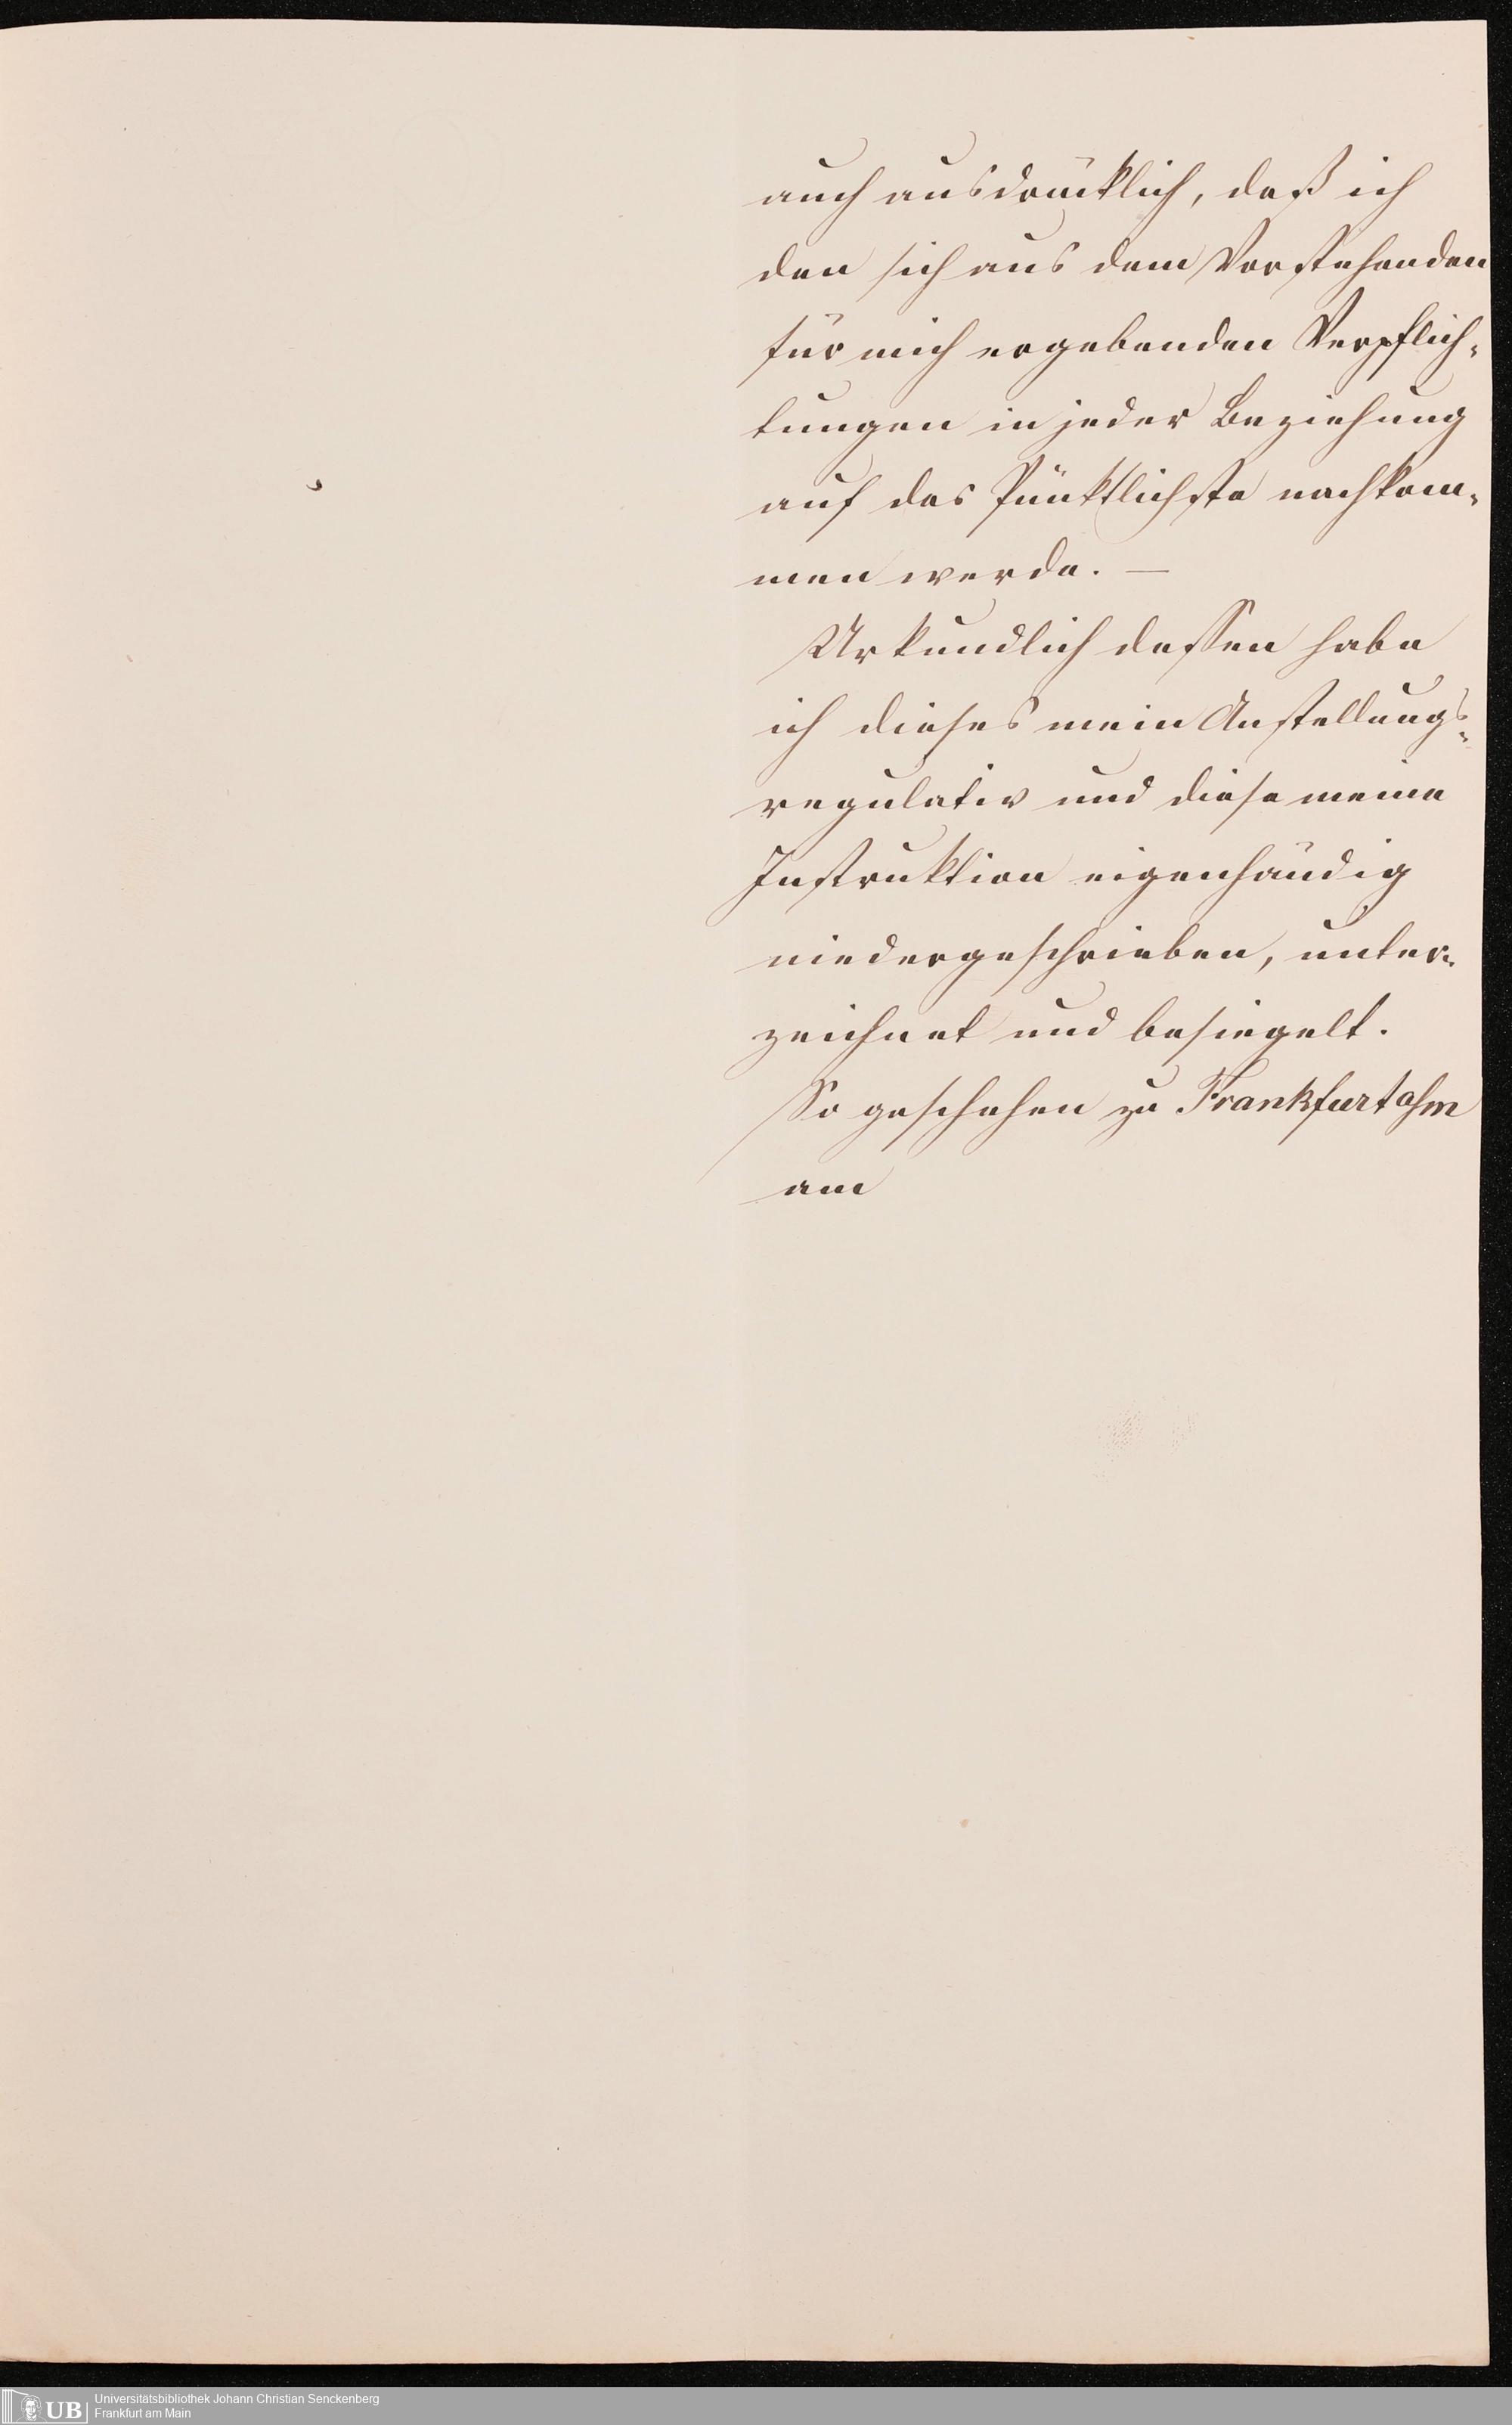 auch ausdrücklich, daß ich
den sich aus dem Vorstehenden
für mich ergebenden Verpflich-
tungen in jeder Beziehung
auf das Pünktlichste nachkom-
men werde. —
Urkundlich dessen habe
ich dieses mein Anstellungs-
regulativ und diese meine
Instruktion eigenhändig
niedergeschrieben, unter-
zeichnet und besiegelt.
So geschehen zu Frankfurt a/m
am
UB
Universitätsbibliothek Johann Christian Senckenberg
Frankfurt am Main